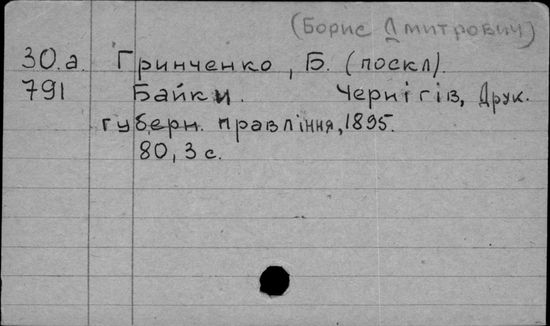 (Борис Дмитрович)
30.а. Гринченко, Б. (поскл).
791 Байки. Чернігів, Друк.
губерн. правління, 1895.
80, 3 с.